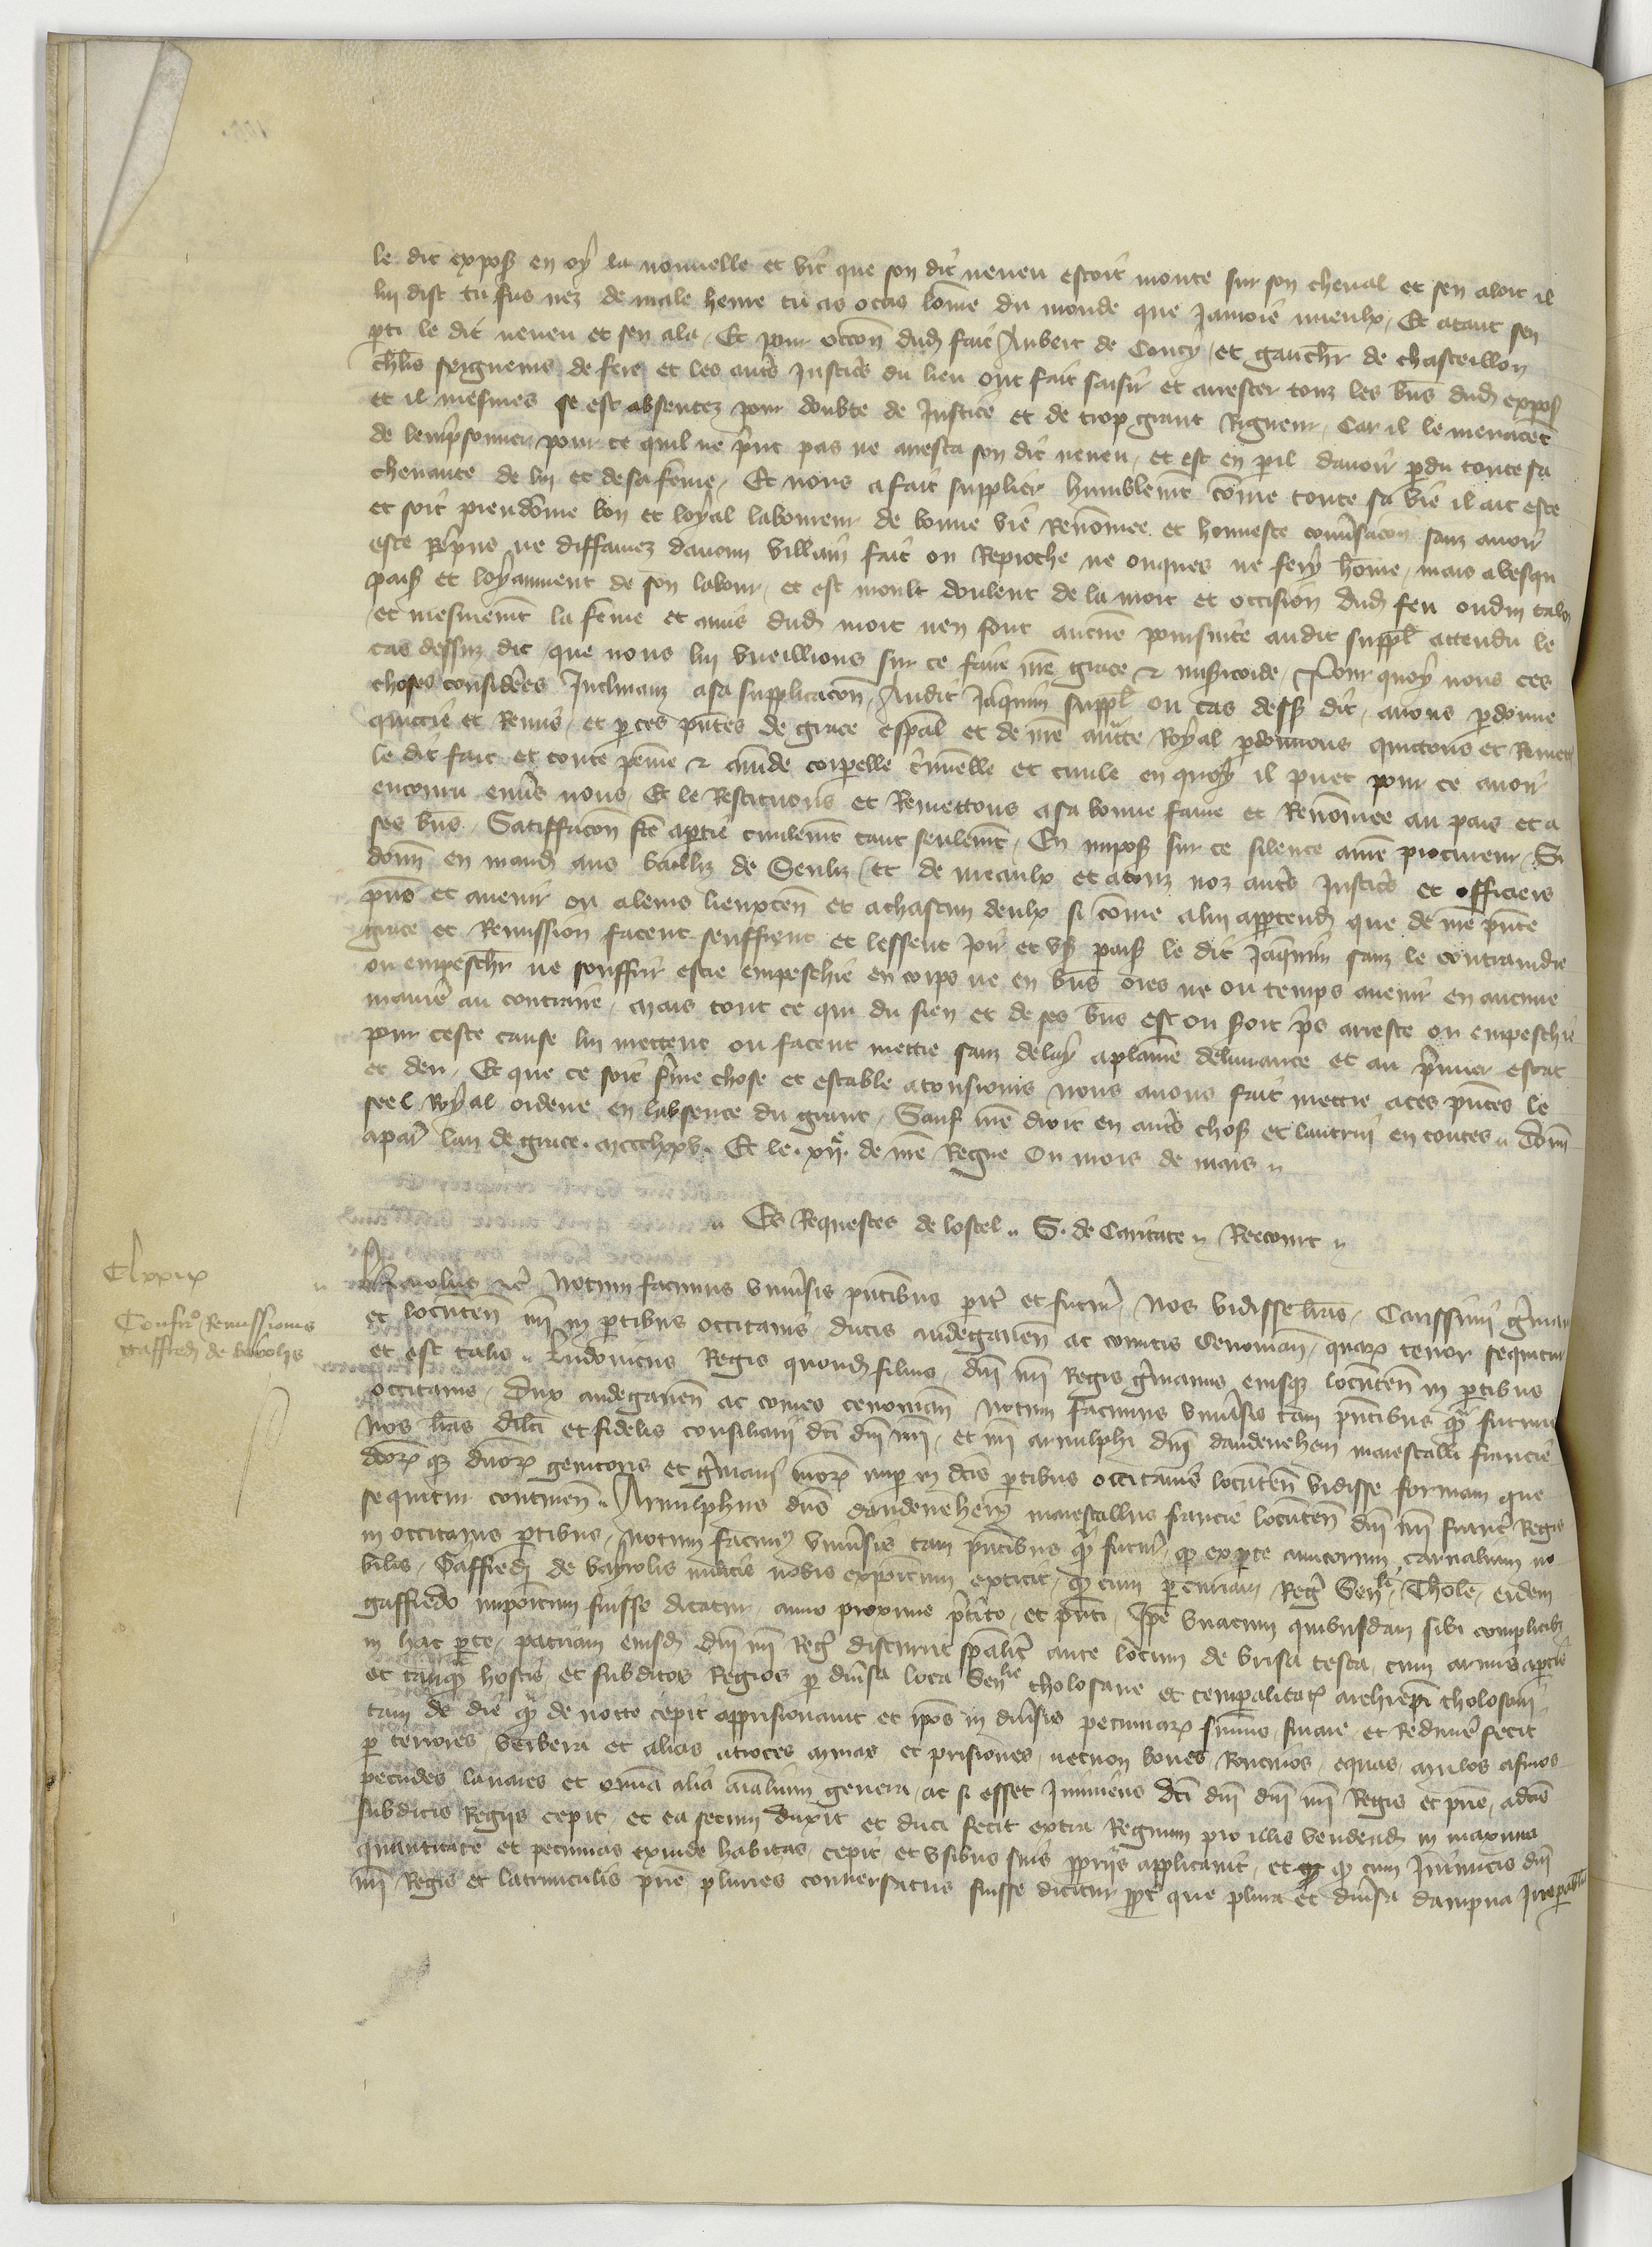 le dit expos en oy la nouvelle et vit que son dit neveu estoit monte sur son cheval et sen aloit il
lui dist tu fus nez de male heure tu as occis lomme du monde que Jamoie mieulx / Et atant sen
parti le dit neveu et sen ala / Et pour occon dud fait Aubert de Coucy / et gauchr de chasteillon
chlrs seigneurs de fere et les autrs Justices du lieu ont fait saisir et arrester touz les bns dud expos
et il mesmes se est absentez pour doubte de Justice et de trop grant Rigueur / Car il le menacent
de lemprisonner pour ce quil ne print pas ne arresta son dit neveu / et est en peril davoir perdu toute sa
chevance de lui et de sa feme / Et nous a fait supplier humblemt come toute sa vie il ait este
et soit preudome bon et loyal laboureur de bonne vie Renomee et honneste conversacon sanz avoir
este Repris ne diffamez daucun villain fait ou Reproche ne onques ne fery home / mais a vesqu
pais et loyaument de son labour / et est moult doulent de la mort et occision dud feu oudin talon
et mesmemt la feme et amis dud mort nen font aucune poursuite audit suppl attendu le
cas dessuz dit / que nous lui vueillions sur ce faire nre grace & misericorde / Pour quoy nous ces
choses considerees Inclinanz a sa supplicacon / Audit Jaquin suppl ou cas dess dit / avons pardonne
quittie et Remis / et par ces pntes de grace espal et de nre aucte Royal pardonnons quittons et Remett
le dit fait et toute peine & amde corporelle criminelle et civile en quoy il puet pour ce avoir
encouru envrs nous / Et le Restituons et Remettons a sa bonne fame et Renomee au pais et a
ses bns / Satiffacon fte a partie civilemt tant seulemt / En impos sur ce silence a nre procureur / Si
donn en mand aus bailliz de Senliz / et de meaulx et a touz noz autrs Justices et officiers
pns et avenir ou a leurs lieuxten et a chascun deulx si come a lui appartend que de nre pnte
grace et Remission facent seuffrent et lessent Joir et us pais le dit Jaquin sanz le contraindre
ou empeschr ne souffrir estre empeschie en corps ne en bns ores ne ou temps avenir en aucune
maniere au contraire / mais tout ce qui du sien et de ses bns est ou soit pris arreste ou empeschie
pour ceste cause lui mettent ou facent mettre sanz delay a plaine delivrance et au primier estat
et deu / Et que ce soit ferme chose et estable a tousjours nous avons fait mettre a ces pntes le
seel Royal ordene en labsence du grant / Sauf nre droit en autrs chos et lautrui en toutes // Donn
a par lan de grace . mccclxxv . Et le . xije . de nre Regne Ou mois de mars //
// Es Requestes de lostel // G. de Caritate // Recourt //
Clxxix
Confirmo Remissionis
gaffredi de bayolis
Karolus etc Notum facimus universis pntibus pariter et futuris / Nos vidisse lras / Carissimi germani
et locumten nri in partibus occitanis / ducis andegaven ac comitis Cenoman / quarum tenor sequitur
et est talis // Ludovicus Regis quond filius / dni nri Regis germanus eiusque locumten in partibus
occitanis / Dux andegaven ac comes cenoman Notum facimus universis tam pntibus quam futuris
nos lras dilci et fidelis consiliarij dci dni nri / et nri arnulphi dni daudenehen marescalli francie
dcorum que dnorum genitoris et germani nrorum nuper in dcis partibus occitanis locumten vidisse formam que
sequitur continen // Arnulphus dns daudenehem marescallus francie locumten dni nri francie Regis
in occitanis partibus / Notum facimus universis tam pntibus quam futuris / quod ex parte amicorum carnalium no
bilis / Gaffredi de bayolis militis nobis expositum extitit / quod cum per curiam Reg Senlie Thole / eidem
gaffredo impositum fuisse dicatur / anno proxime pterito / et pnti / Ipe unacum quibusdam sibi complicibus
in hac parte / patriam eiusd dni nri Reg discurrit specialiter ante locum de brisa testa / cum armis apertis
et tanquam hostis / et subditos Regios per diversa loca Senlie tholosane et temporalitatis archiepi tholosani
tam de die quam de nocte cepit apprisionavit et ipos in diversis pecuniarum summis / finare et Redimere fecit
per terrores / verbera et alias atroces minas et prisiones / necnon boves Roncinos / equas / mulos asinos
pecudes lanares et omnia alia animalium genera / ac si esset Inimicus dci dni dni nri Regis et patrie / a dcis
subditis Regijs cepit / et ea secum duxit et duci fecit extra Regnum pro illis vendend in maxima
quantitate et pecunias exinde habitas / cepit / et usibus suis proprijs applicavit / et quod cum Inimicis dni
nri Regis et latrunculis patrie pluries conversatus fuisse dicitur propter que plura et diversa dampna Irreparabilia